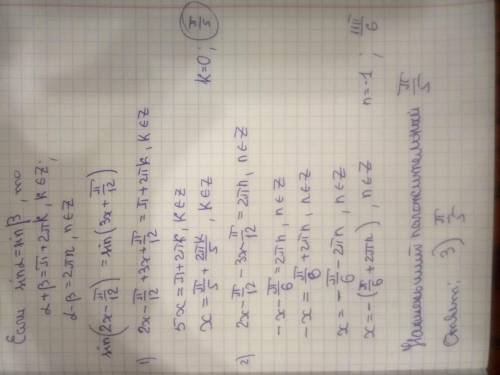 Если sinα = sinβ, то
α+β = π+2πk, k∈Z;
α-β = 2πn, n∈Z
sin(2x-π/12) = sin(3x+π/12)
1) 2x-π/12+3x+π/12 = π+2πk, k∈Z
5x = π+2πk, k∈Z
x = π/5 + 2πk/5, k∈Z k=0; π/5
2) 2x-π/12-3x-π/12 = 2πn, n∈Z
-x-π/6 = 2πn, n∈Z
-x = π/6+2πn, n∈Z
x = -π/6-2πn, n∈Z
x = -(π/6+2πn), n∈Z n=-1; 11π/6
Наименьший положительный π/5
Ответ: 3) π/5